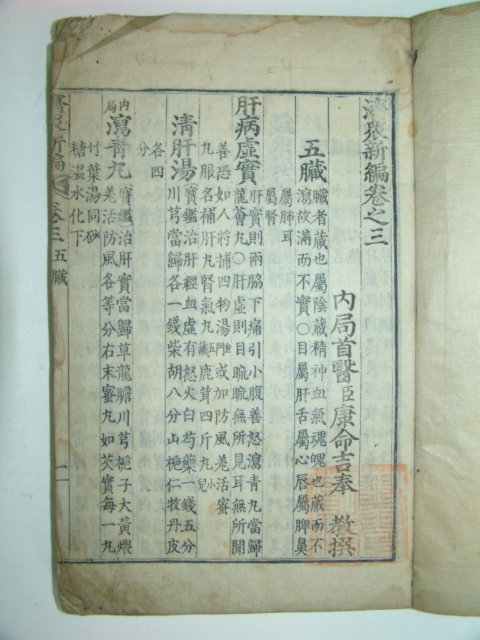 濟衆新編卷之三
內局首醫臣康命吉奉 教撰
五臟 臟者藏也屬陰藏精神血氣魂魄也藏而不
瀉故滿而不實○目屬肝舌屬心唇屬脾鼻
屬肺耳
屬腎
肝病虛實 肝實則兩脇下痛引小腹善怒瀉青丸當歸
龍薈丸○肝虛則目䀮䀮無所見耳無所聞
善恐如人將捕四物湯門或加防風羌活蜜
丸服名補肝丸腎氣丸五臟鹿茸四斤丸小兒
清肝湯 寶鑑治肝經血虛有怒火白芍藥一錢五分
川芎當歸各一錢柴胡八分山梔仁牧丹皮
各四
分
內局 瀉青丸 寶鑑治肝實當歸草龍膽川芎梔子大黃煨
羌活防風各等分右末蜜丸如芡實每一丸
竹葉湯同砂
糖溫水化下
濟衆新編 卷三 五臟 一